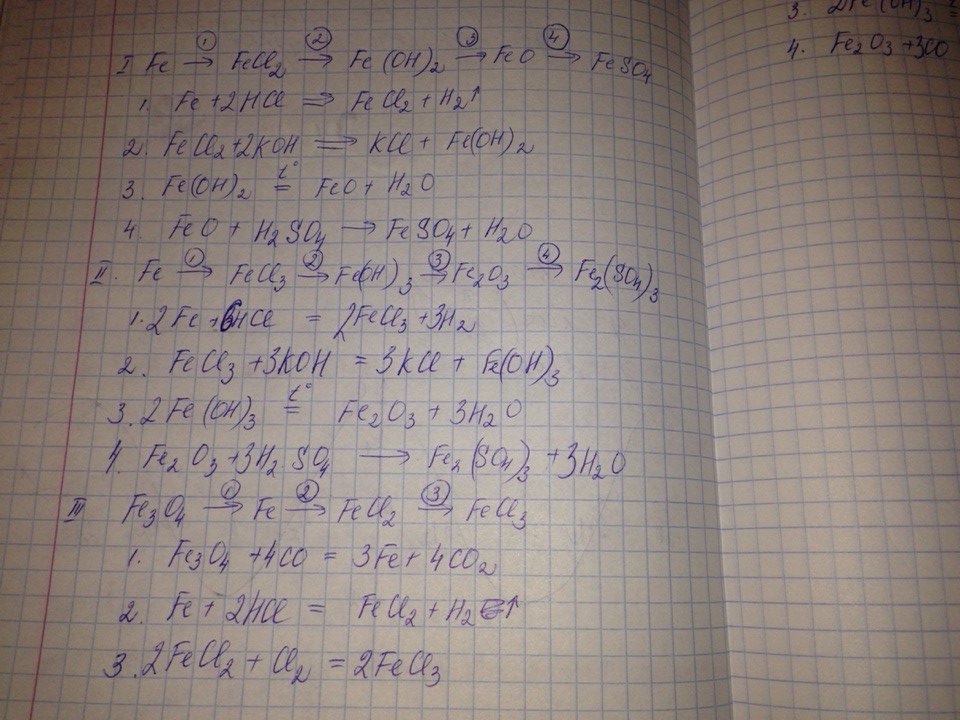 I Fe →① FeCl₂ →② Fe(OH)₂ →③ FeO →④ FeSO₄
1. Fe + 2HCl ⇒ FeCl₂ + H₂↑
2. FeCl₂ + 2KOH ⇒ KCl + Fe(OH)₂
3. Fe(OH)₂ =t° FeO + H₂O
4. FeO + H₂SO₄ → FeSO₄ + H₂O
II. Fe →① FeCl₃ →② Fe(OH)₃ →③ Fe₂O₃ →④ Fe₂(SO₄)₃
1. 2Fe + 6HCl = 2FeCl₃ + 3H₂
2. FeCl₃ + 3KOH = 3KCl + Fe(OH)₃
3. 2Fe(OH)₃ =t° Fe₂O₃ + 3H₂O
4. Fe₂O₃ + 3H₂SO₄ → Fe₂(SO₄)₃ + 3H₂O
III Fe₃O₄ →① Fe →② FeCl₂ →③ FeCl₃
1. Fe₃O₄ + 4CO = 3Fe + 4CO₂
2. Fe + 2HCl = FeCl₂ + H₂↑
3. 2FeCl₂ + Cl₂ = 2FeCl₃
3. 2Fe(OH)₃
4. Fe₂O₃ + 3CO